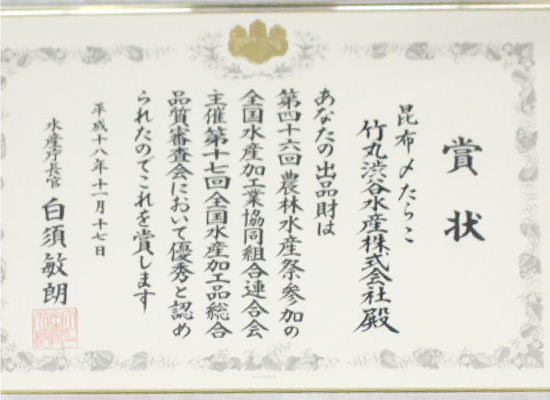 賞状
昆布〆たらこ
竹丸渋谷水産株式会社殿
あなたの出品財は
第四十六回農林水産祭参加の
全国水産加工業協同組合連合会
主催第十七回全国水産加工品総合
品質審査会において優秀と認め
られたのでこれを賞します
平成十八年十一月十七日
水産庁長官 白須敏朗